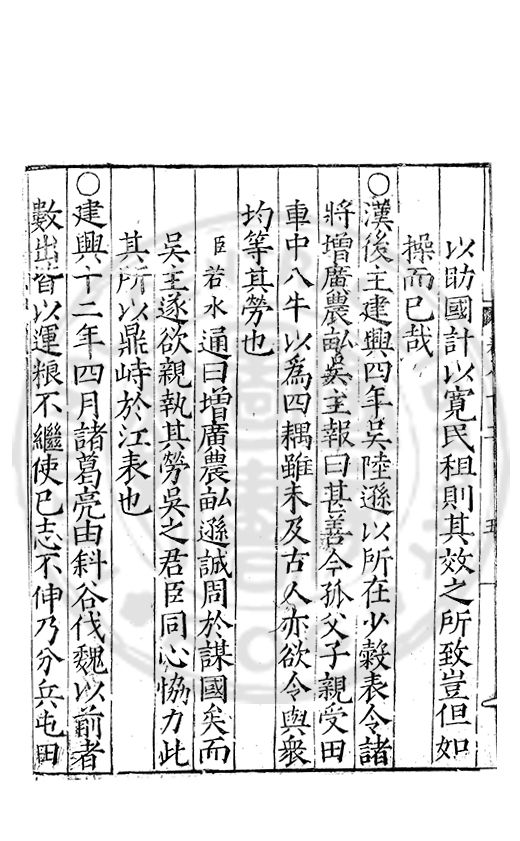 以助國計以寛民租則其效之所致豈但如
操而已哉
○漢後主建興四年吳陸遜以所在少穀表令諸
將增廣農畝吳主報曰甚善令孤父子親受田
車中八牛以爲四耦雖未及古人亦欲令與衆
均等其勞也
臣若水通曰增廣農畝遜誠周於謀國矣而
吳主遂欲親執其勞吳之君臣同心恊力此
其所以鼎峙於江表也
○建興十二年四月諸葛亮由斜谷伐魏以前者
數出皆以運粮不繼使已志不伸乃分兵屯田